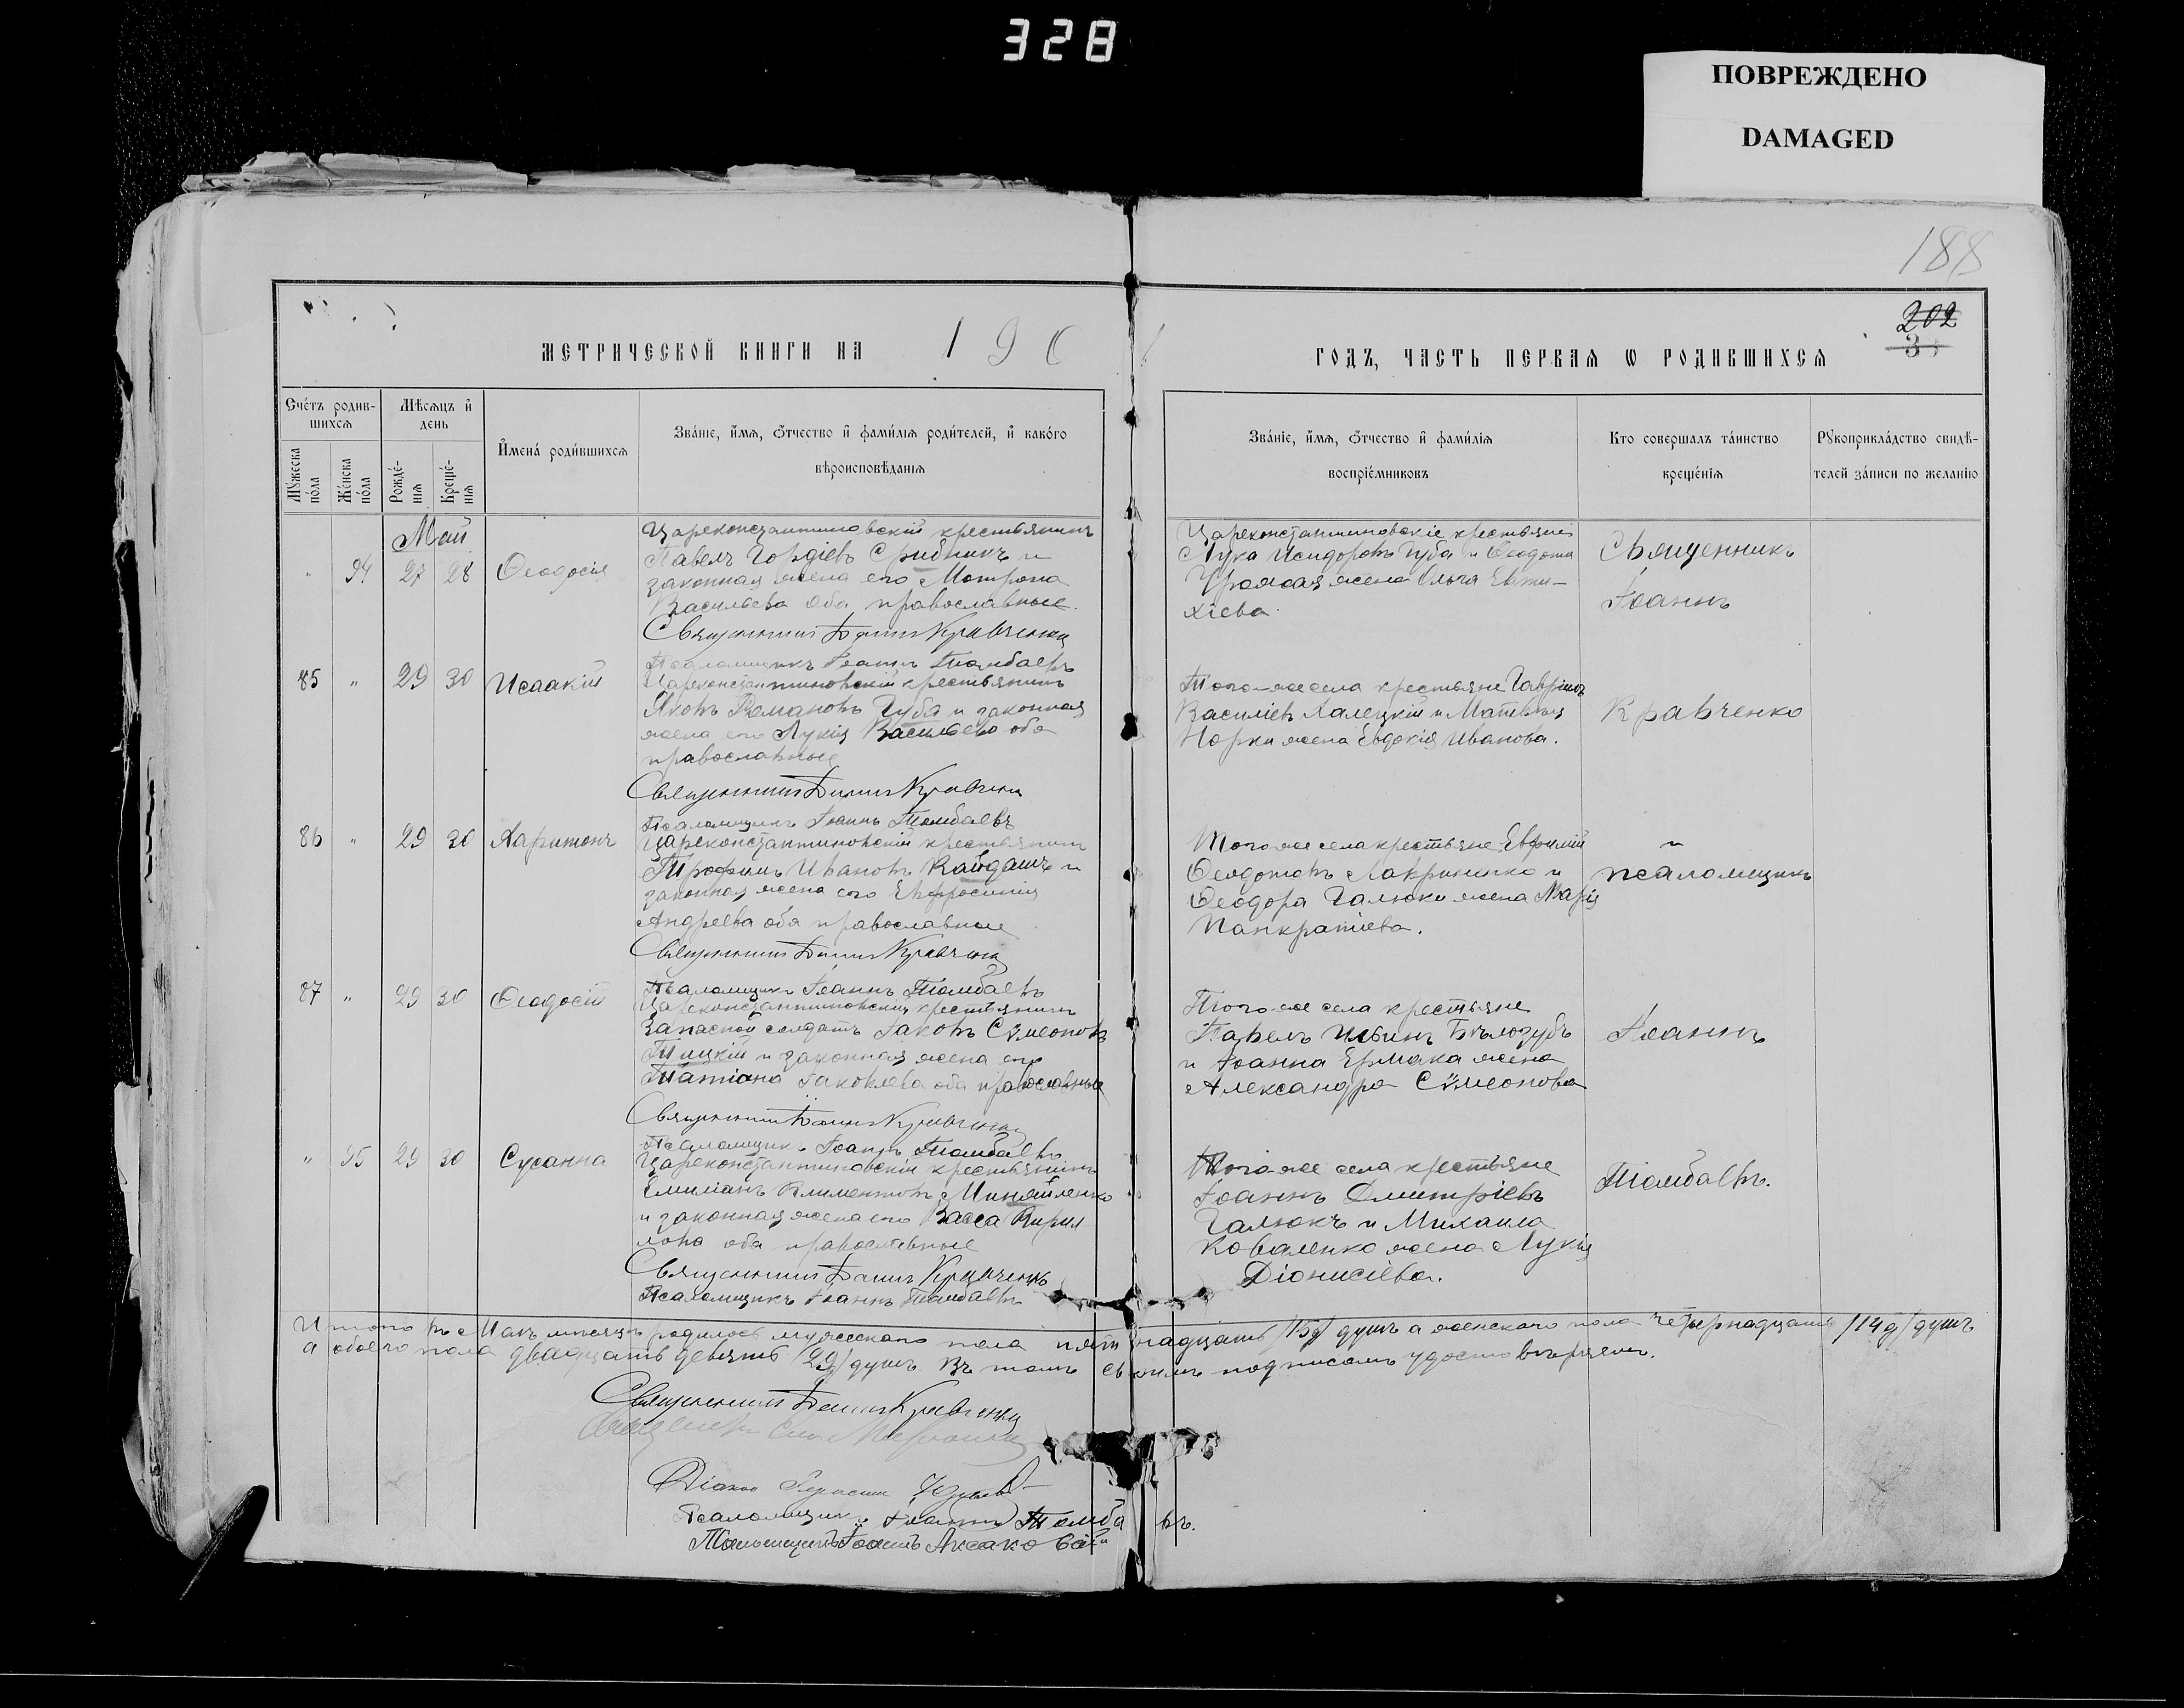 328
ПОВРЕЖДЕНО
DAMAGED
188
202
МЕТРИЧЕСКОЙ КНИГИ НА 190
ГОДЪ, ЧАСТЬ ПЕРВАЯ Ѡ РОДИВШИХСЯ
Счетъ родив-
шихся
Мужеска
пола
Женска
пола
Мѣсяцъ и
день
Рожде-
нія
Креще-
нія
Имена родившихся
Званіе, имя, отчество и фамилія родителей, и какого
вѣроисповѣданія
Званіе, имя, отчество и фамилія
воспріемниковъ
Кто совершалъ таинство
крещенія
Рукоприкладство свидѣ-
телей записи по желанію
Май
" 94 27 28 Ѳеодосія
Цареконстантиновскій крестьянинъ
Павелъ Гордіевъ Срибникъ и
законная жена его Мотрона
Васильева оба православные.
Священникъ Іоаннъ Кравченко
Псаломщикъ Іоаннъ Томбаевъ
Цареконстантиновскіе крестьяне
Лука Исидоровъ Губа и Ѳеодота
жена Ольга Евти-
хіева.
Священникъ
Іоаннъ
85 " 29 30 Исаакій
Цареконстантиновскій крестьянинъ
Яковъ Романовъ Губа и законная
жена его Лукія Васильева оба
православные
Священникъ Іоаннъ Кравченко
Псаломщикъ Іоаннъ Томбаевъ
Того-же села крестьяне Гавріилъ
Василіевъ Халецкій и Матѳея
Норки жена Евдокія Иванова.
Кравченко
86 " 29 30 Харитонъ
Цареконстантиновскій крестьянинъ
Трофимъ Ивановъ Кайдашъ и
законная жена его Евфросинія
Андреева оба православные
Священникъ Іоаннъ Кравченко
Псаломщикъ Іоаннъ Томбаевъ
Того же села крестьяне Евфимій
Ѳеодотовъ Лавриненко и
Ѳеодора Галюка жена Марія
Панкратіева.
и
псаломщикъ
87 " 29 30 Ѳеодосій
Цареконстантиновскій крестьянинъ
Запасной солдатъ Іаковъ Сѵмеоновъ
Тицкій и законная жена его
Татіана Іаковлева оба православные
Священникъ Іоаннъ Кравченко
Псаломщикъ Іоаннъ Томбаевъ
Того-же села крестьяне
Павелъ Ильинъ Бѣлозубъ
и Іоанна Ермака жена
Александра Сѵмеонова
Іоаннъ
" 95 29 30 Сусанна
Цареконстантиновскій крестьянинъ
Емиліанъ Климентовъ Миняйленко
и законная жена его Васса Кирил
лова оба православные
Священникъ Іоаннъ Кравченко
Псаломщикъ Іоаннъ Томбаевъ
Того-же села крестьяне
Іоаннъ Димитріевъ
Галюкъ и Михаила
Коваленко жена Лукія
Діонисіева.
Томбаевъ.
Итого въ Маѣ мѣсяцѣ родилось мужескаго пола пятнадцать /15/ душъ а женскаго пола четырнадцать /14/ душъ
а обоего пола двадцать девять /29/ душъ. Въ томъ своимъ подписомъ удостовѣряемъ.
Священникъ Іоаннъ Кравченко
Священникъ
Діаконъ Герасим
Псаломщикъ Іоаннъ Томба въ.
Іоаннъ